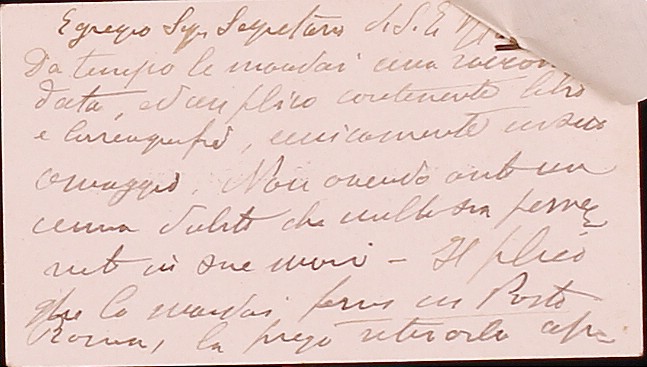 Egregio Sigr Segretario di S. E.
Da tempo le mandai una raccoman
data, ed un plico contenente libro
e, unicamente in suo
omaggio. Non avendo avuto un
cenno dubito che nulla sia perve
nuto in sue mani – Il plico
che le mandai fermo in Posta
Roma, la prego ritirarlo